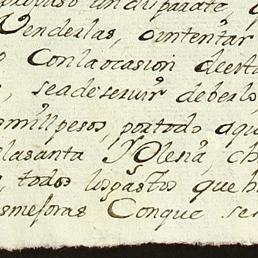 un disparate, q
Venderlas, o intentar
Con la ocasion de esta
, sea de servir deberlo,
mill pesos, por todo aqu
la santa Yglena, ch
, todos los gastos que h
smejoras Conque se